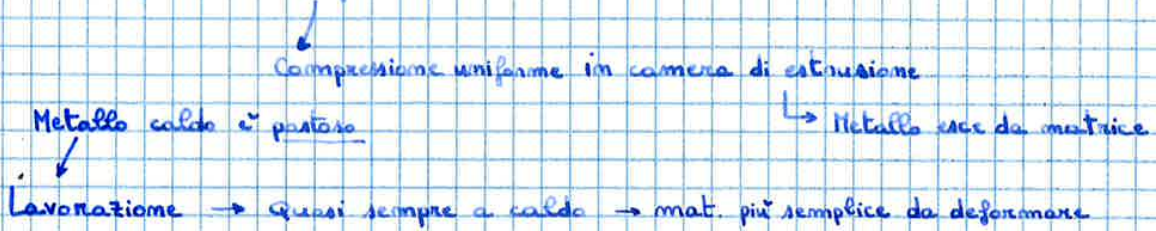 Compressione uniforme in camera di estrusione
Metallo caldo è pastoso
↳ Metallo esce da matrice
Lavorazione → Quasi sempre a caldo → mat. più semplice da deformare